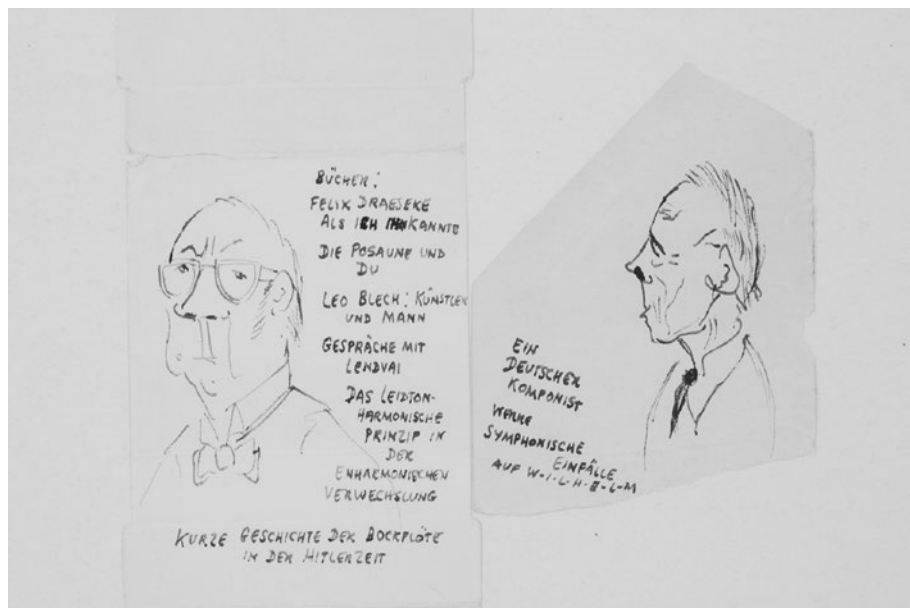 BÜCHER:
FELIX DRAESEKE
ALS ICH IHN KANNTE
DIE POSAUNE UND
DU
LEO BLECH: KÜNSTLER
UND MANN
GESPRÄCHE MIT
LENDVAI
DAS LEIDTON-
HARMONISCHE
PRINZIP IN
DER
ENHARMONISCHEN
VERWECHSLUNG
KURZE GESCHICHTE DER BOCKFLÖTE
IN DER HITLERZEIT
EIN
DEUTSCHER
KOMPONIST
WERKE
SYMPHONISCHE
EINFÄLLE
AUF W-I-L-H-E-L-M